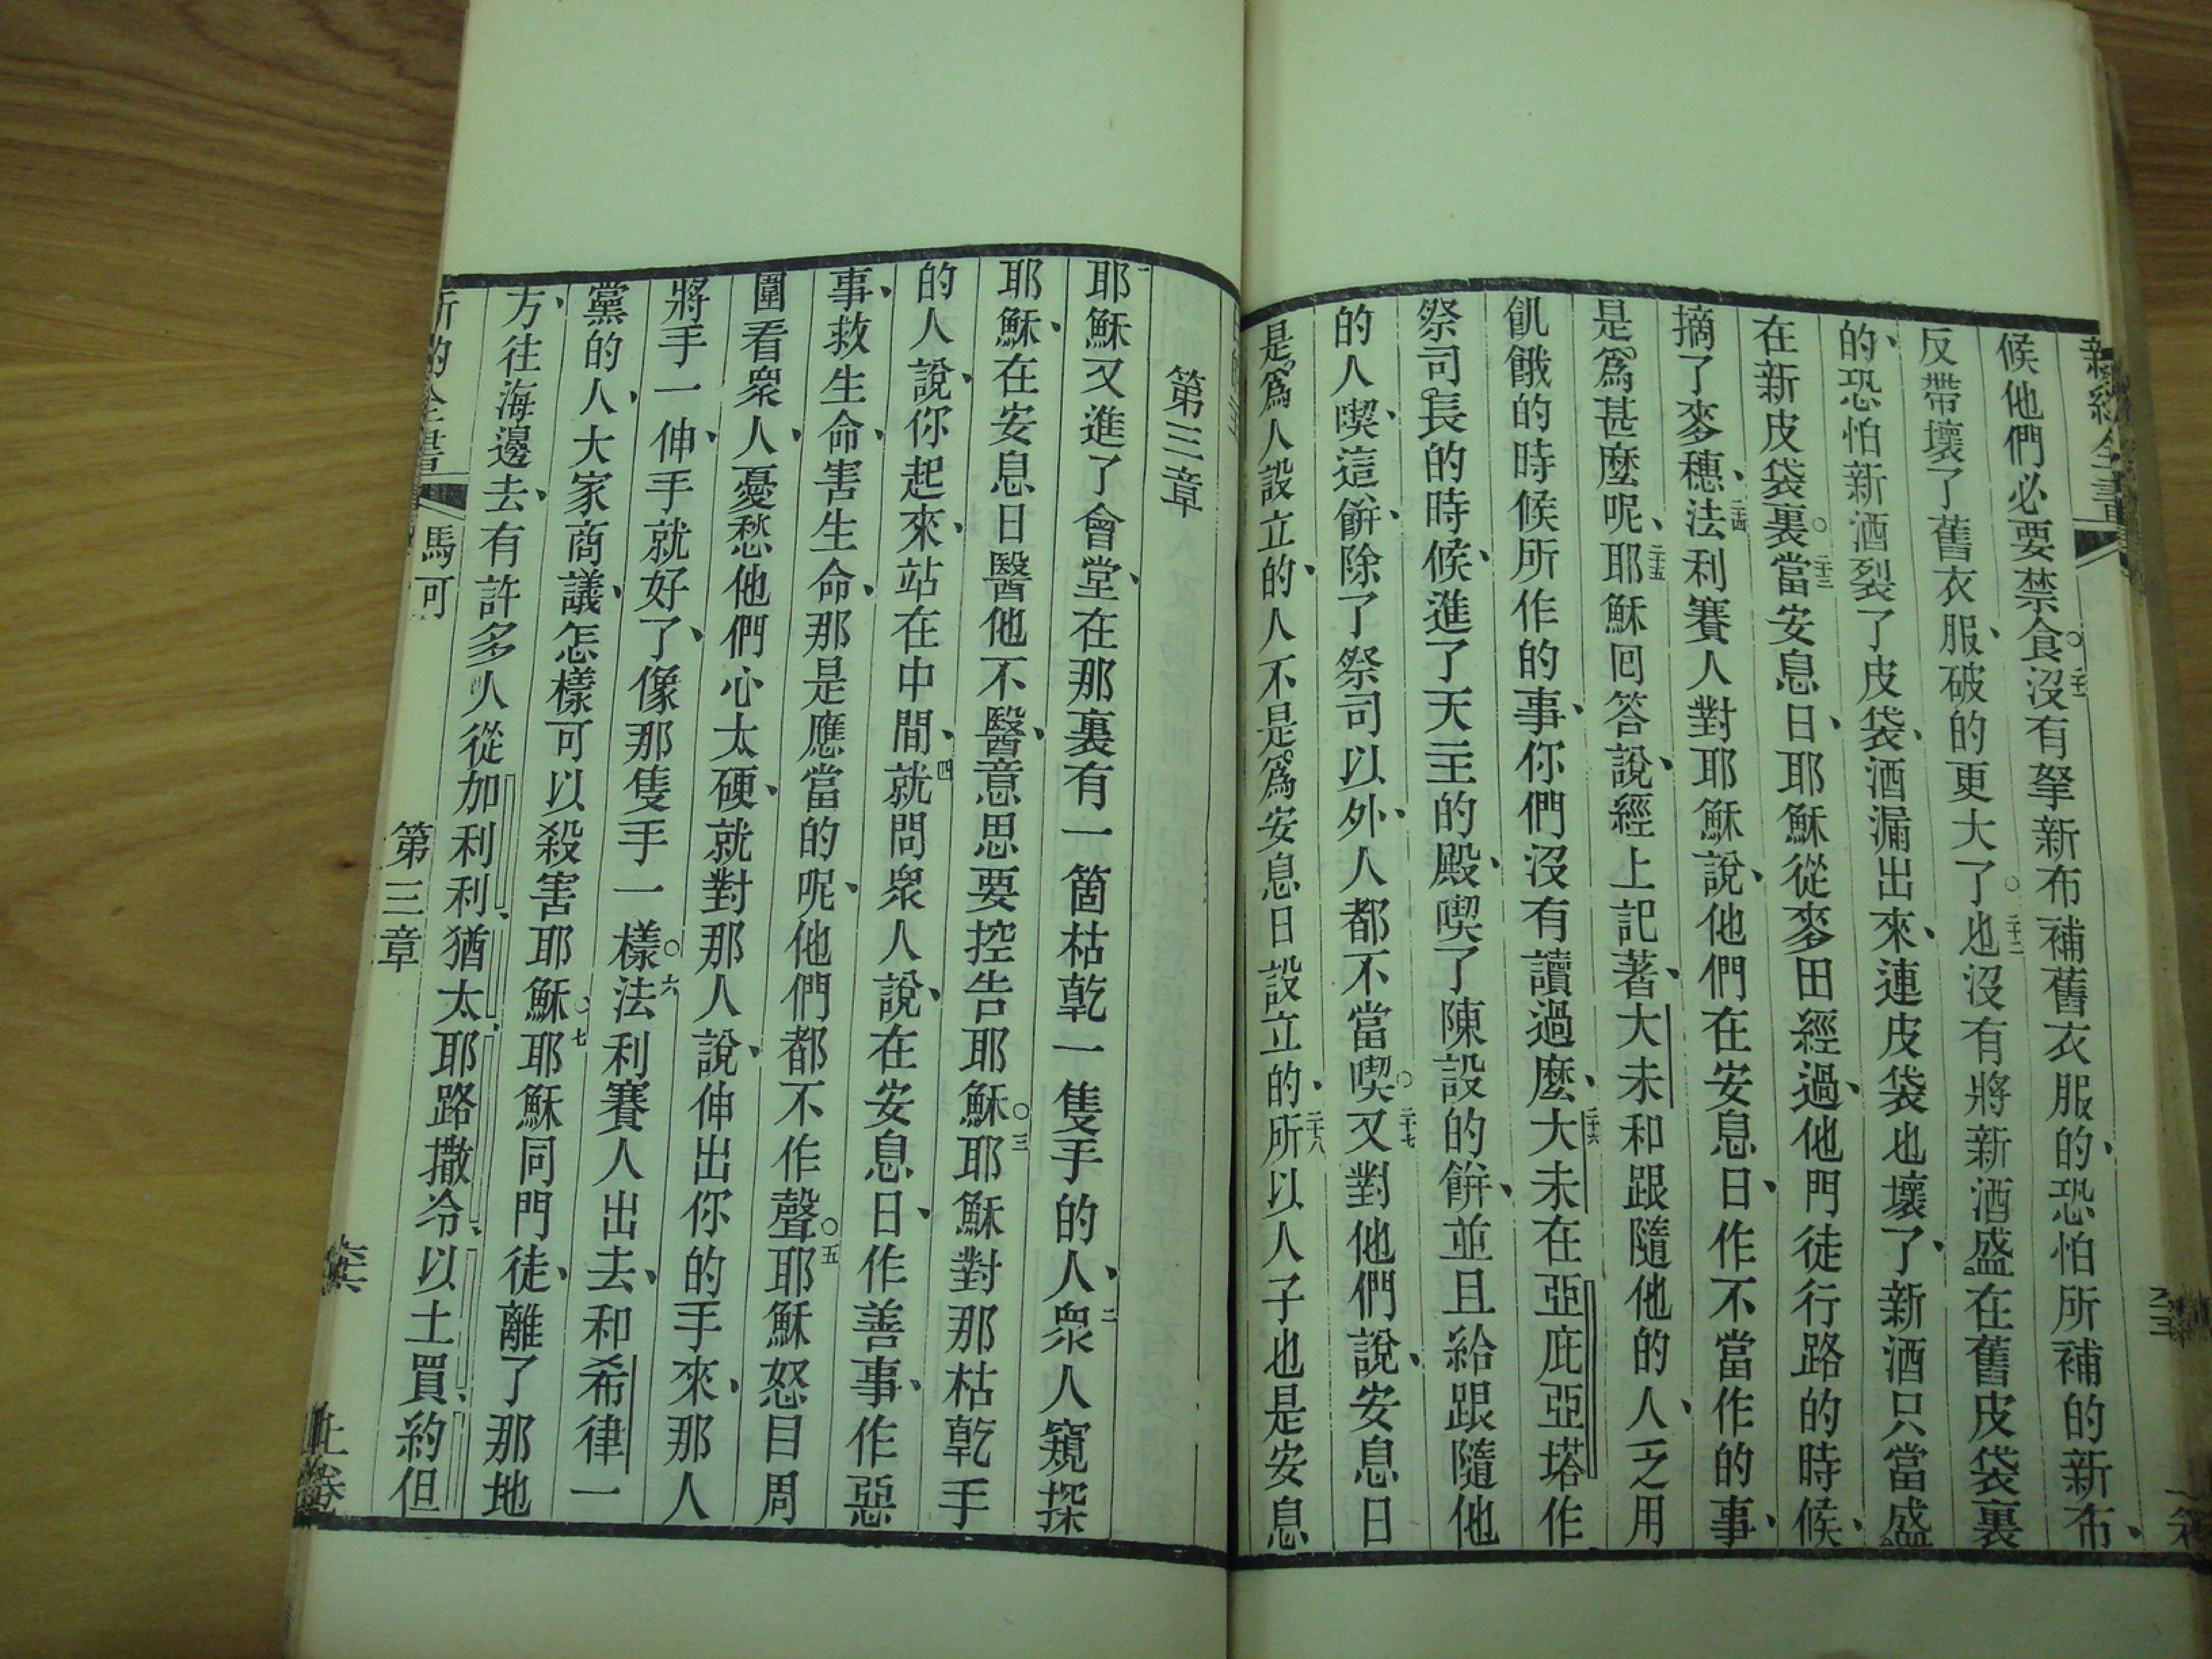 候他們必要禁食○二十一沒有拏新布補舊衣服的、恐怕所補的新布、
反帶壞了舊衣服、破的更大了○二十二也沒有將新酒盛在舊皮袋裏
的、恐怕新酒裂了皮袋、酒漏出來、連皮袋也壞了、新酒只當盛
在新皮袋裏○二十三當安息日、耶穌從麥田經過、他門徒行路的時候、
摘了麥穗、二十四法利賽人對耶穌說、他們在安息日、作不當作的事、
是爲甚麼呢、二十五耶穌囘答說、經上記著、大未和跟隨他的人、乏用
飢餓的時候所作的事、你們沒有讀過麼、二十六大未在亞庇亞塔作
祭司長的時候、進了天主的殿、喫了陳設的餅、並且給跟隨他
的人喫、這餅、除了祭司以外、人都不當喫○二十七又對他們說、安息日
是爲人設立的、人不是爲安息日設立的、二十八所以人子也是安息
第三章
一耶穌又進了會堂、在那裏有一箇枯乾一隻手的人、二衆人窺探
耶穌、在安息日醫他不醫、意思要控告耶穌○三耶穌對那枯乾手
的人說、你起來、站在中間、四就問衆人說、在安息日、作善事、作惡
事、救生命、害生命、那是應當的呢、他們都不作聲○五耶穌怒目周
圍看衆人、憂愁他們心太硬、就對那人說、伸出你的手來、那人
將手一伸、手就好了、像那隻手一樣○六法利賽人出去、和希律一
黨的人、大家商議、怎樣可以殺害耶穌○七耶穌同門徒、離了那地
方、往海邊去、有許多人從加利利、猶太、耶路撒冷、以土買、約但
馬可 第三章